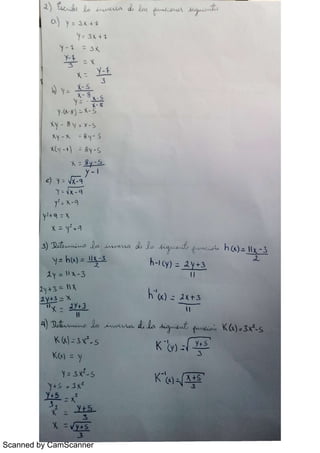 2) Escribe la inversa de las funciones siguientes
a) y = 3x+1
y = 3x+1
y-1 = 3x
y-1/3 = x
x = y-1/3
b) y = x-5/x-8
y = x-5/x-8
y·(x-8) = x-5
xy - 8y = x-5
xy - x = 8y-5
x(y-1) = 8y-5
x = 8y-5/y-1
c) y = √x-9
y = √x-9
y² = x-9
y²+9 = x
x = y²+9
3) Determina la inversa de la siguiente función h(x) = 11x-3/2
y = h(x) = 11x-3/2 h-1(y) = 2y+3/11
2y = 11x-3
2y+3 = 11x
2y+3/11 = x h⁻¹(x) = 2x+3/11
x = 2y+3/11
4) Determina la inversa de la siguiente función K(x) = 3x²-5
K(x) = 3x²-5 K⁻¹(y) = √y+5/3
K(x) = y
y = 3x²-5 K⁻¹(x) = √x+5/3
y+5 = 3x²
y+5/3 = x²
x² = y+5/3
x = √y+5/3
Scanned by CamScanner